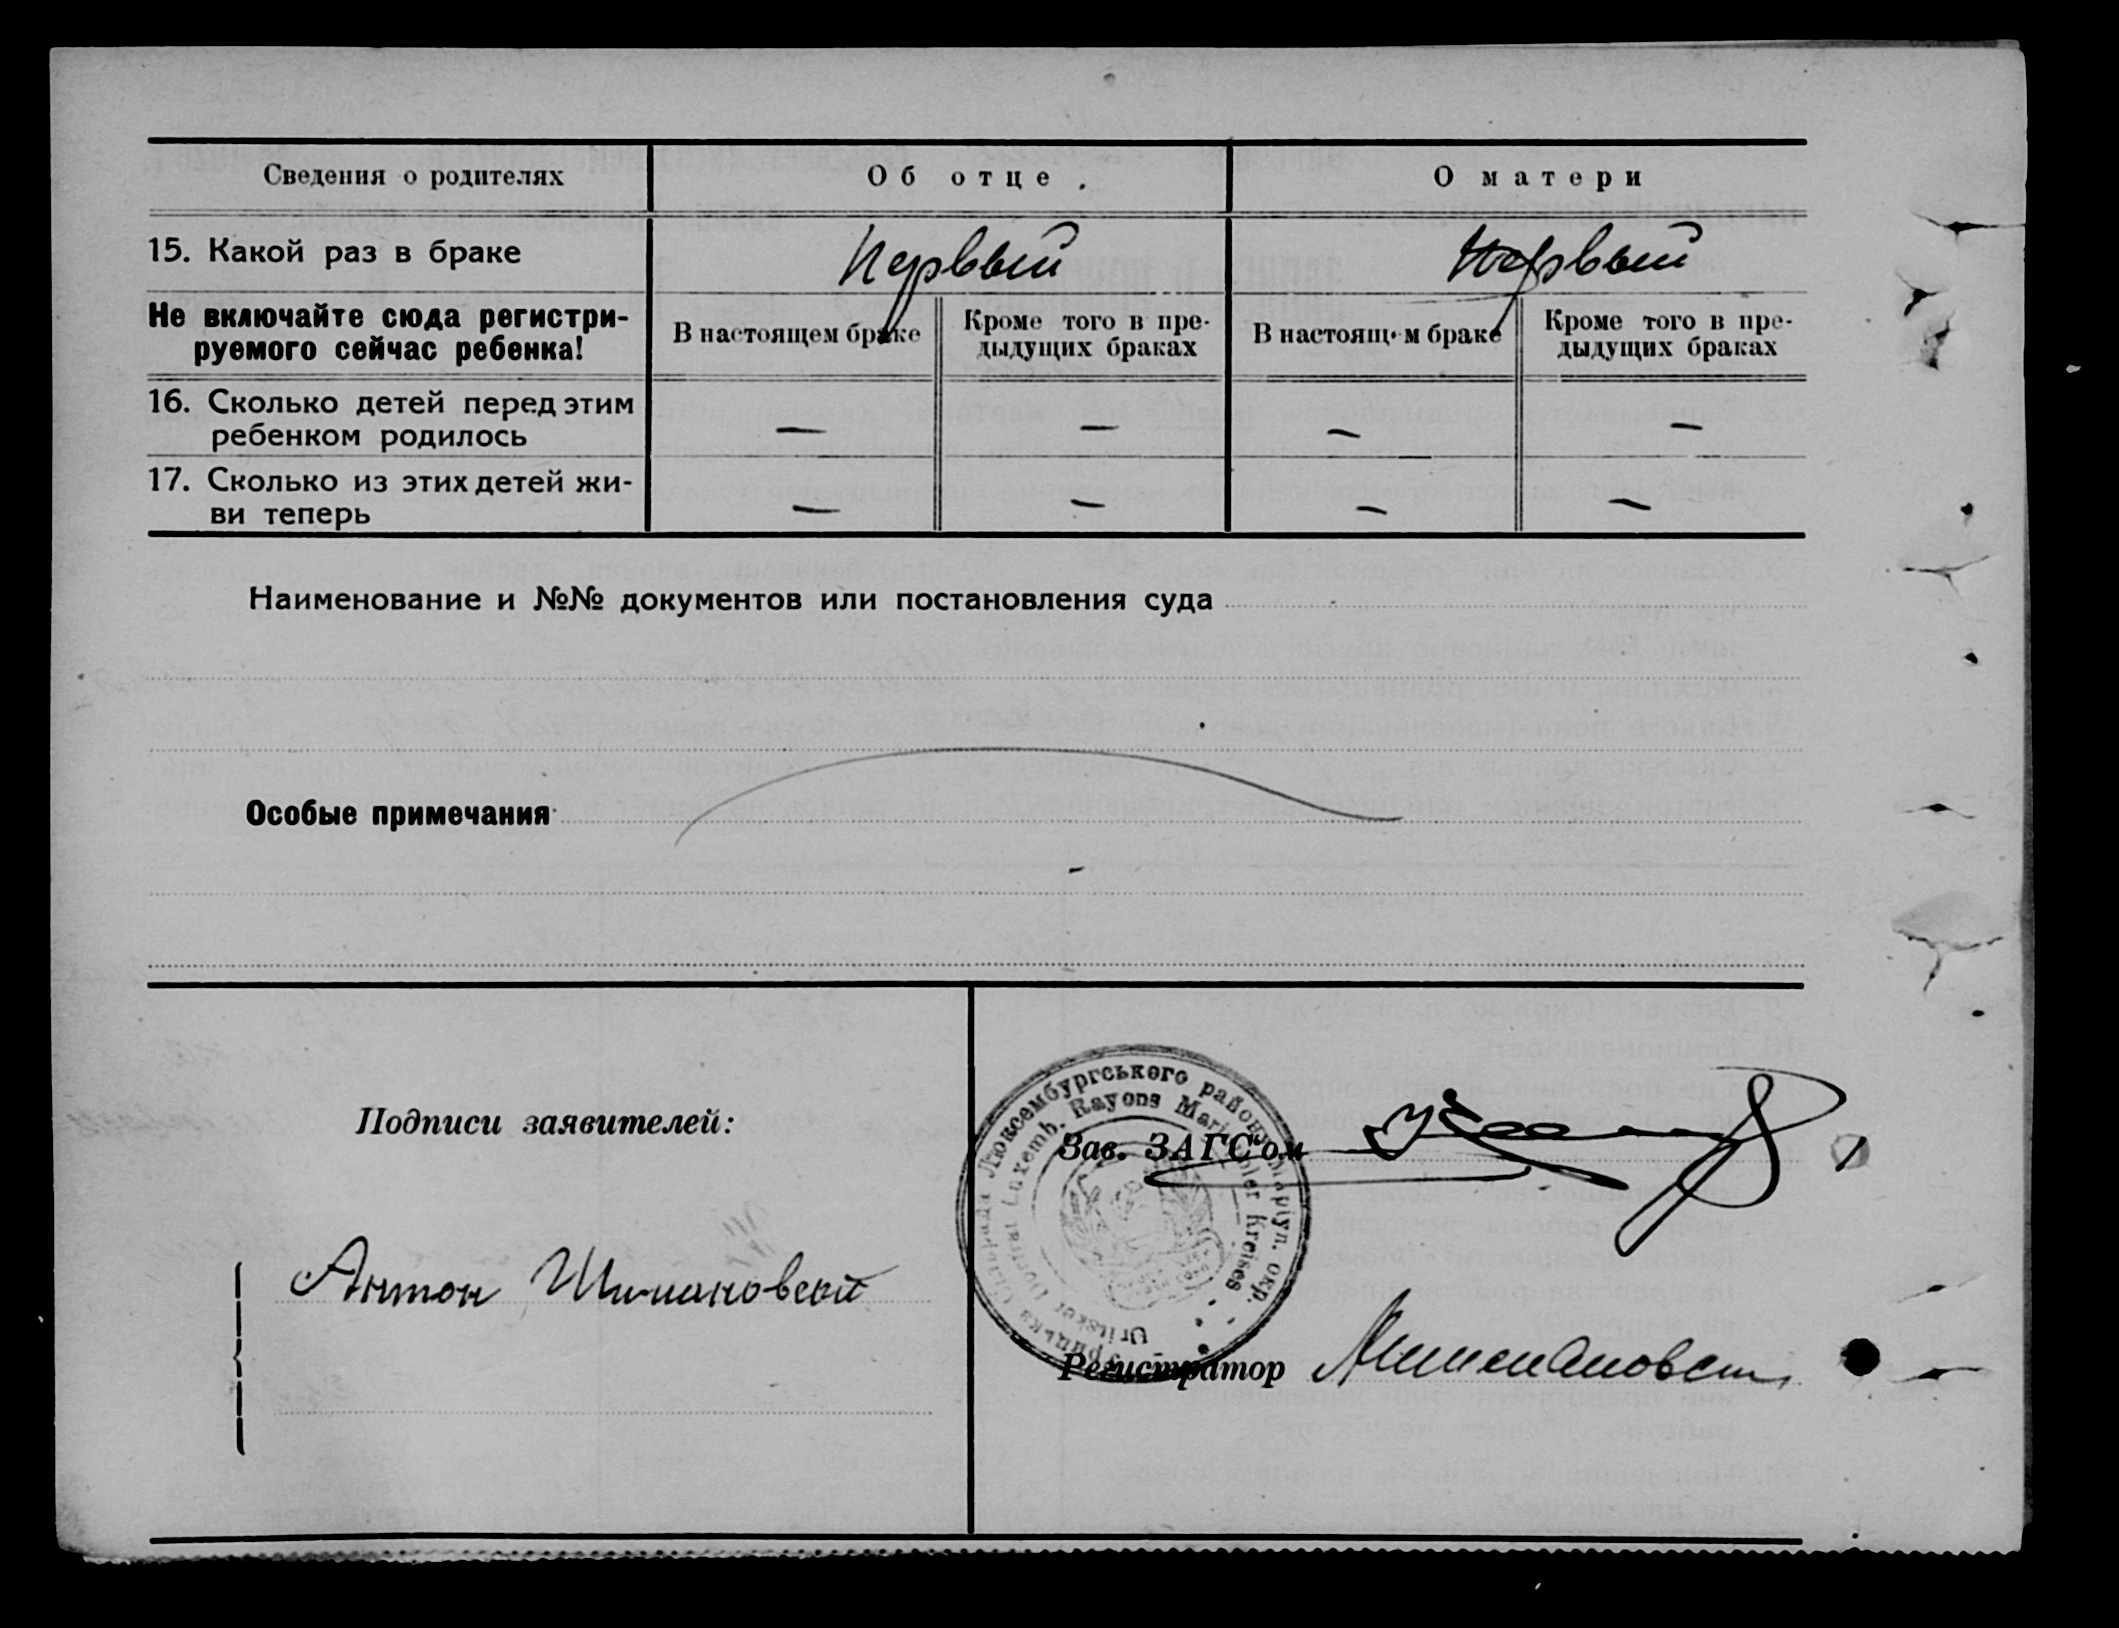 Сведения о родителях
Об отце.
О матери
15. Какой раз в браке
Первый
Первый
Не включайте сюда регистри-
руемого сейчас ребенка!
В настоящем браке
Кроме того в пре-
дыдущих браках
В настоящем браке
Кроме того в пре-
дыдущих браках
16. Сколько детей перед этим
ребенком родилось
— — — —
17. Сколько из этих детей жи-
ви теперь
— — — —
Наименование и №№ документов или постановления суда
Особые примечания
Подписи заявителей:
Антон Шимановский
Люксембургського району Маріуп. окр.
Luxemb. Rayons Mariupoler Kreises
Зав. ЗАГС'ом
Регистратор